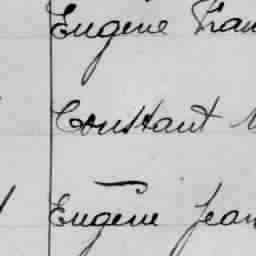 Eugene Fran
Constant
Eugène Jean